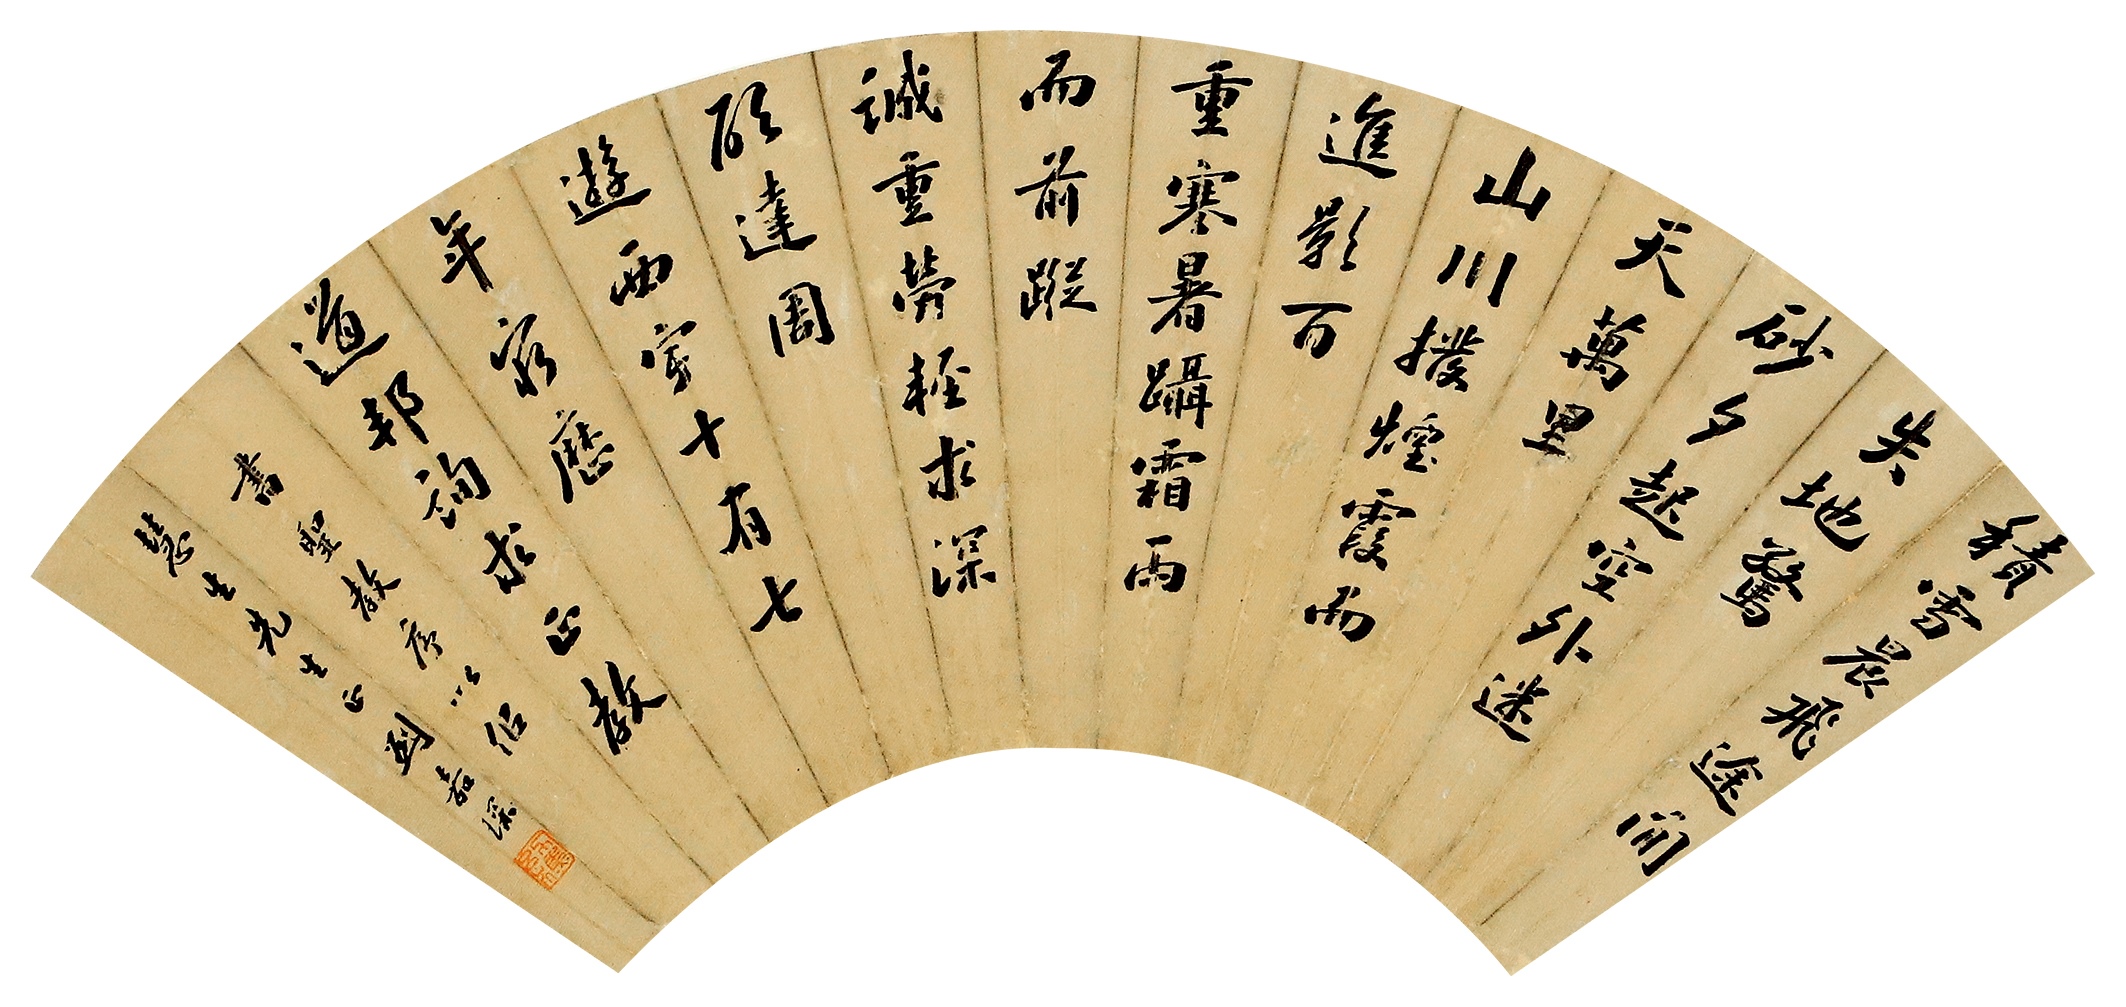 積雪晨飛途間
失地驚
砂夕起空外迷
天萬里
山川撥煙霞而
進影百
重寒暑躡霜雨
而前蹤
誠重勞輕求深
願達周
遊西宇十有七
年窮歷
道邦詢求正教
書聖教序以伯
慧生先生正劉嘉琛